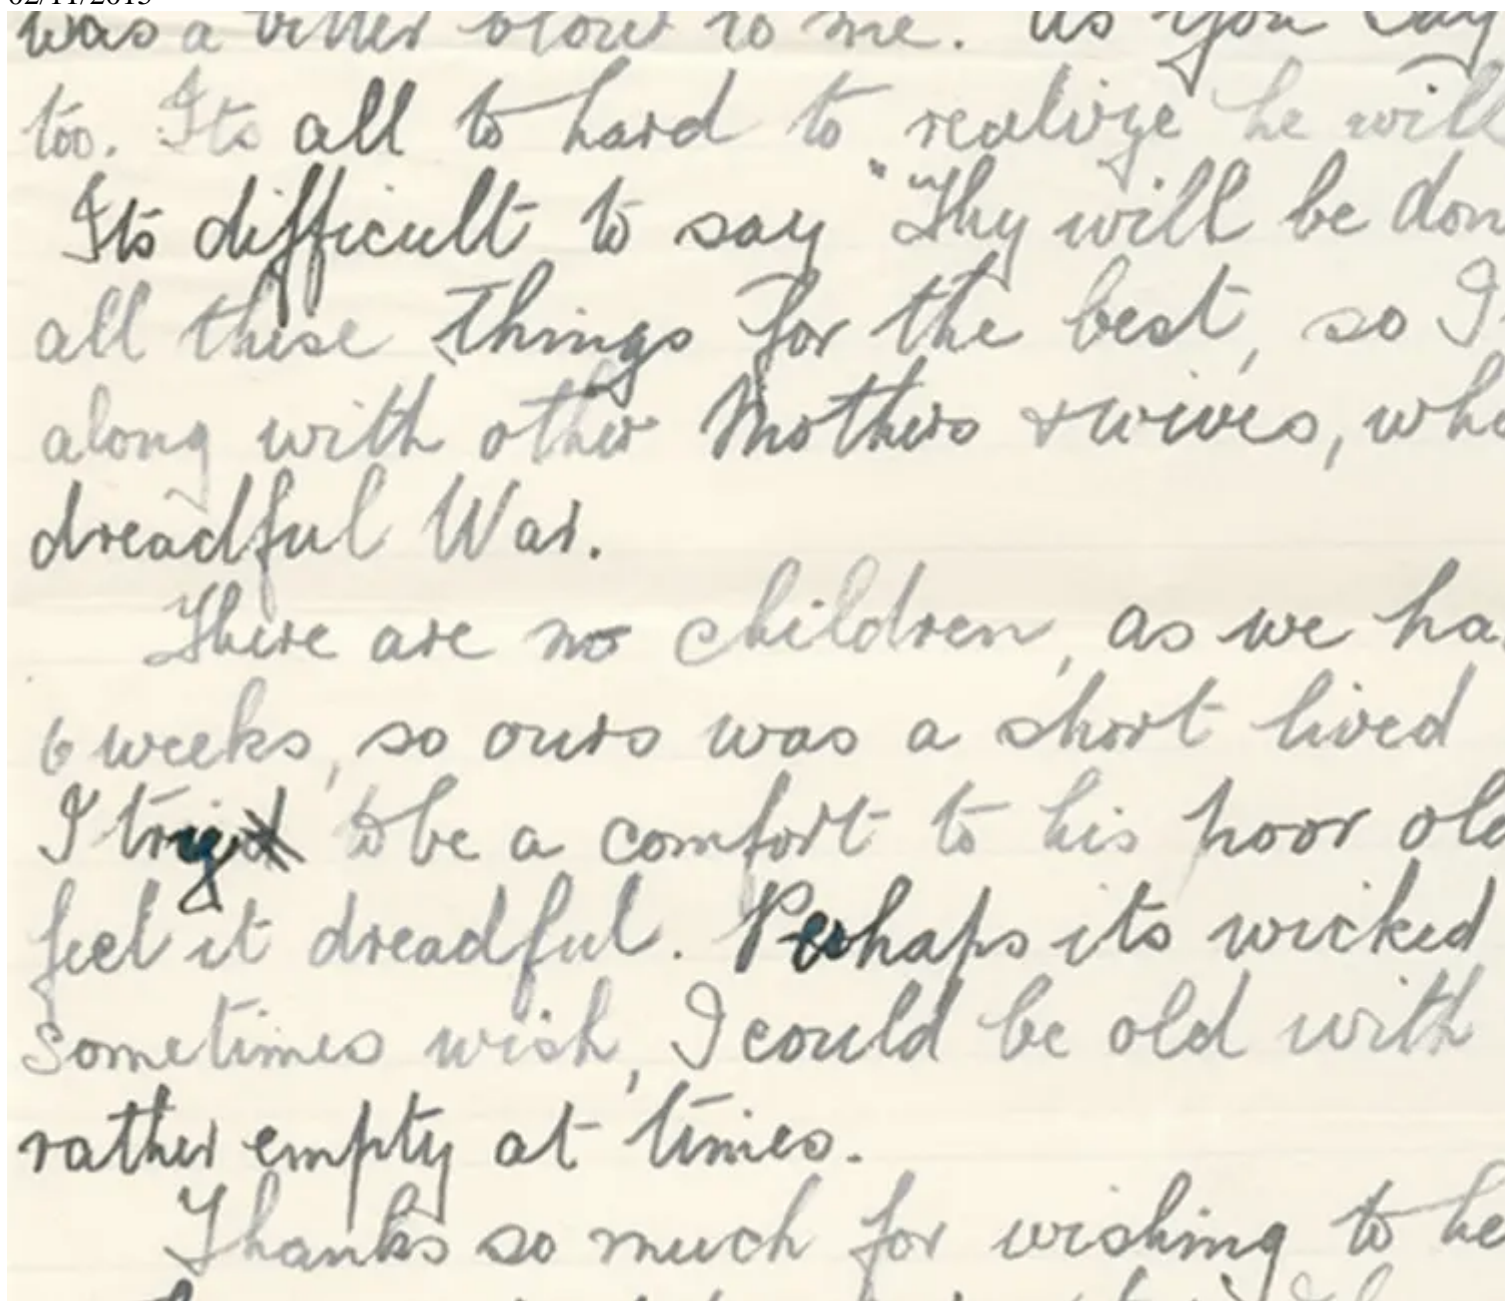 was a bitter blow to me. As you say
too. Its all to hard to realize he will
Its difficult to say "Thy will be don
all these things for the best, so I
along with other Mothers & wives, who
dreadful War.
There are no children, as we ha
6 weeks, so ours was a short lived
I try to be a comfort to his poor old
feel it dreadful. Perhaps its wicked
Sometimes wish, I could be old with
rather empty at times.
Thanks so much for wishing to he